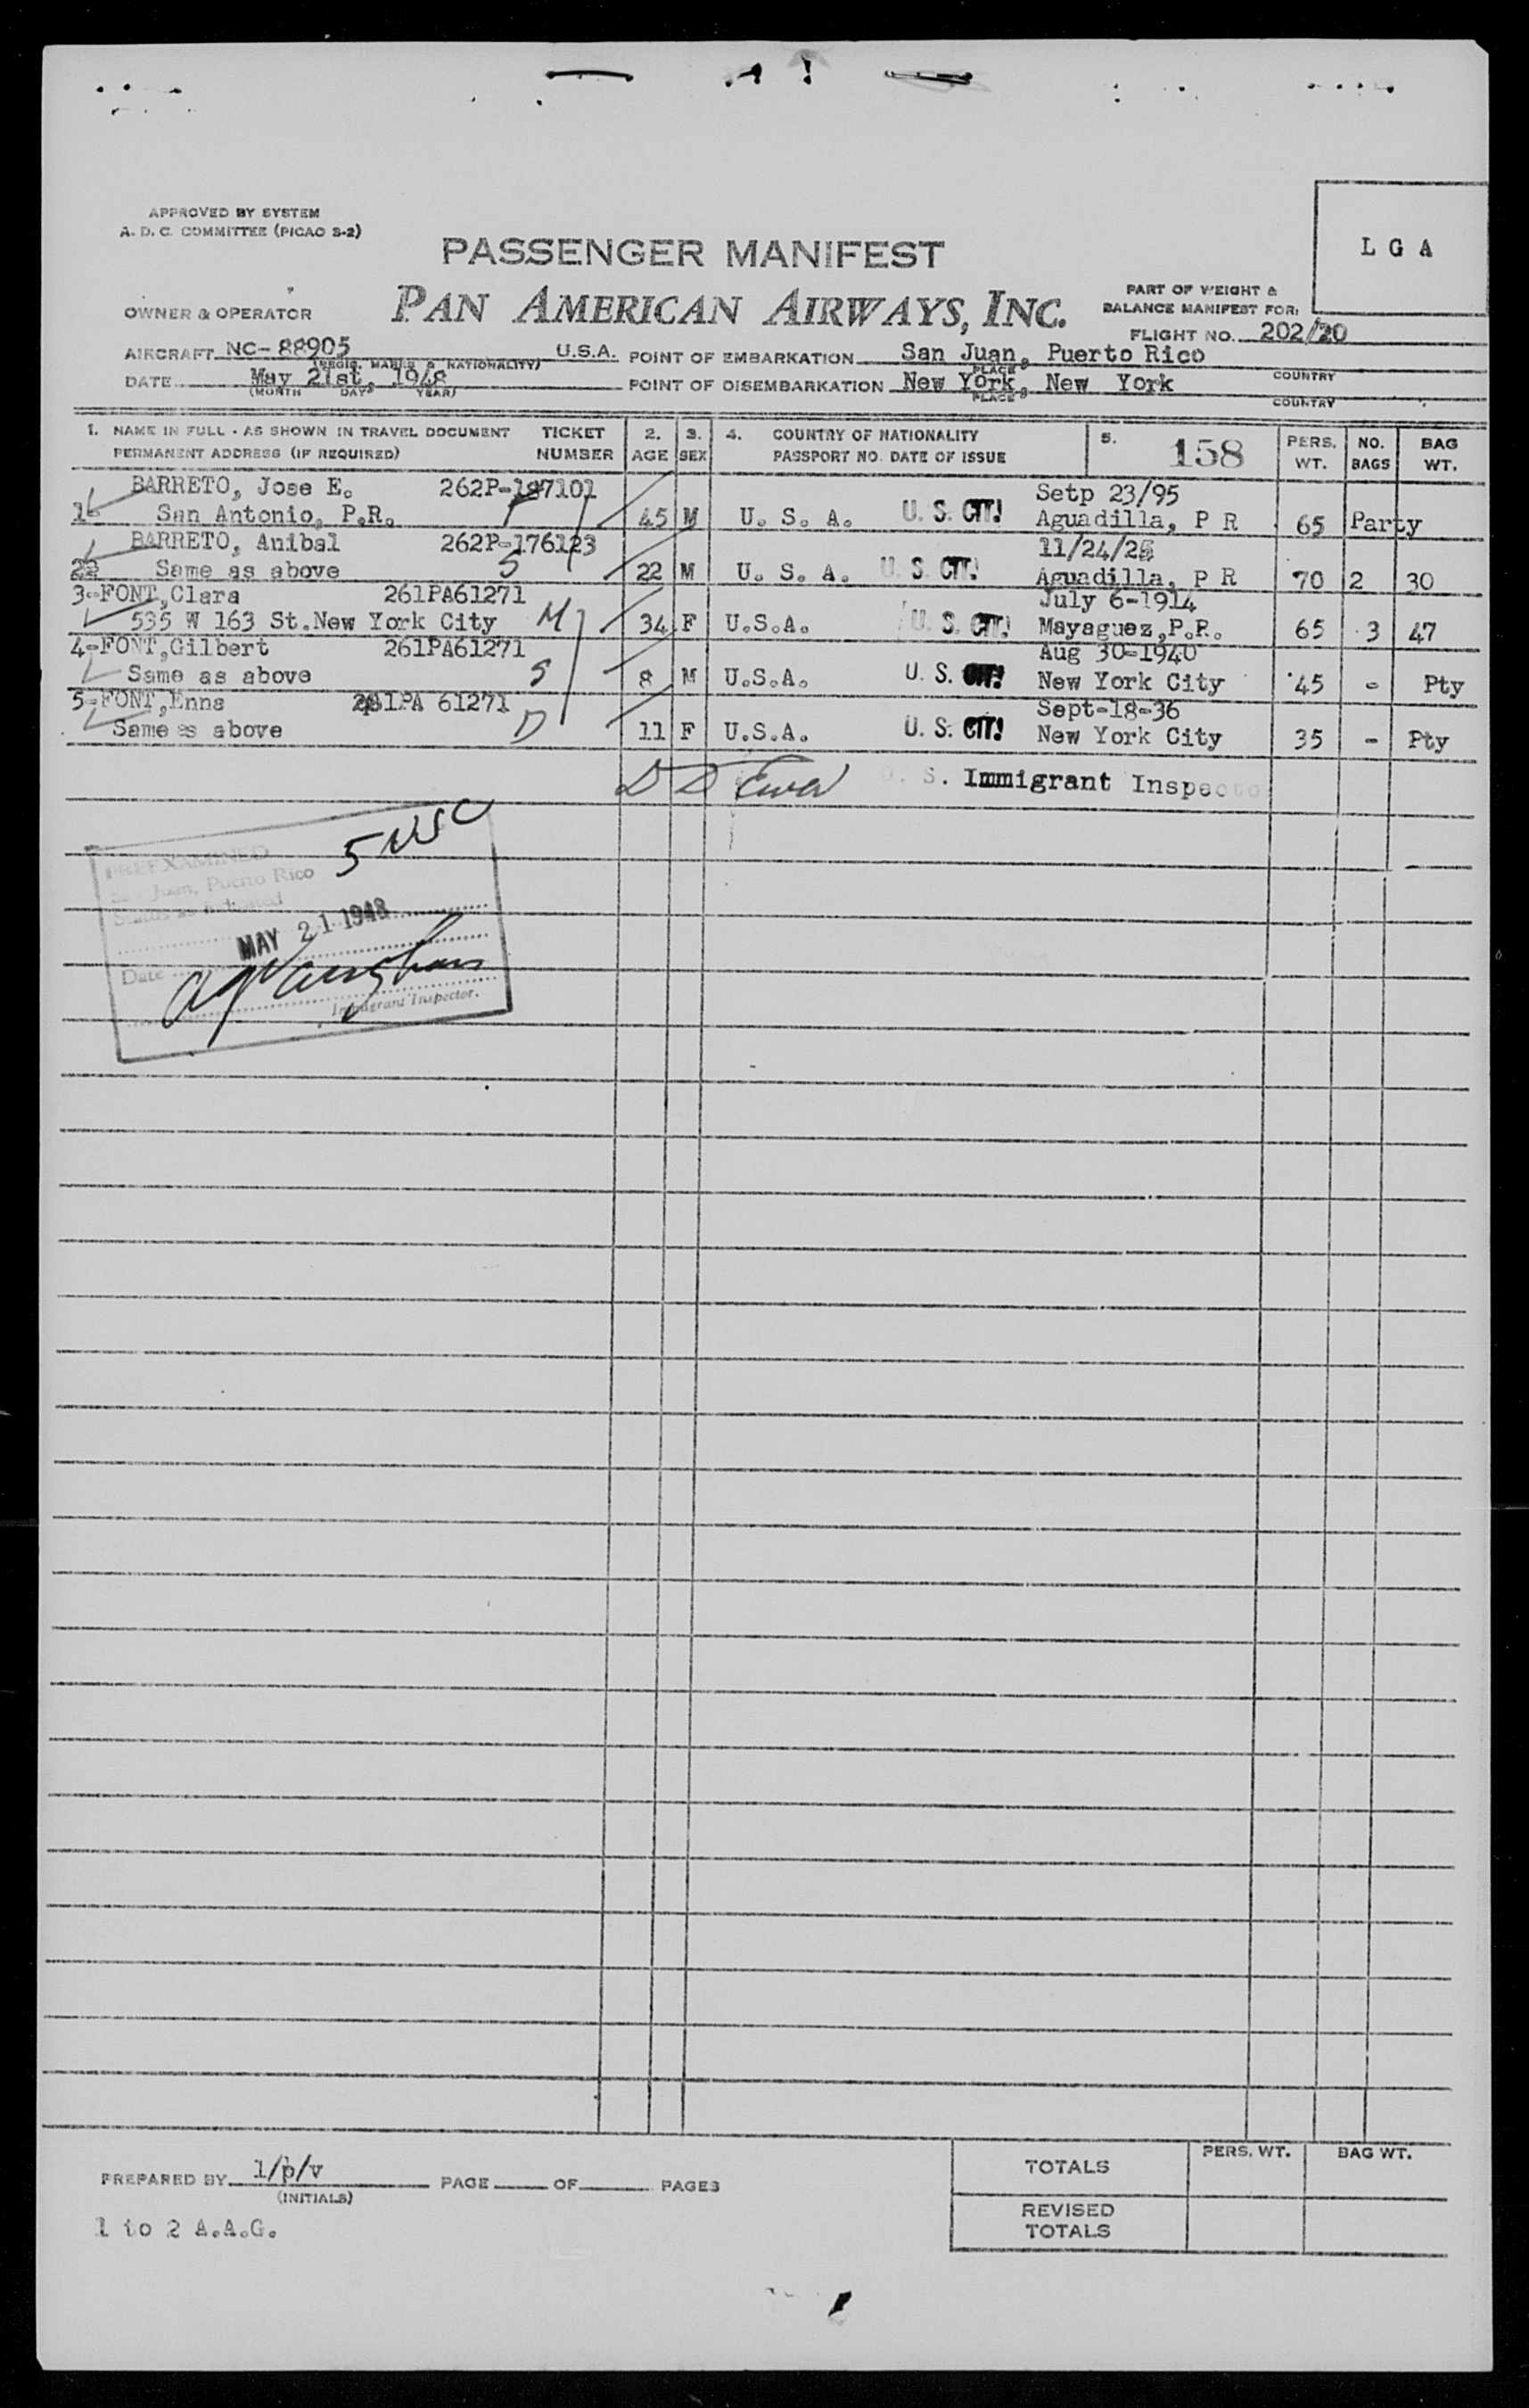 APPROVED BY SYSTEM
A. D. C. COMMITTEE (PICAO S-2)
L G A
PASSENGER MANIFEST
OWNER & OPERATOR
PAN AMERICAN AIRWAYS, INC.
PART OF WEIGHT &
BALANCE MANIFEST FOR:
FLIGHT NO. 202/20
AIRCRAFT NC-88905 U.S.A. POINT OF EMBARKATION San Juan, Puerto Rico
(REGIS. MARKS & NATIONALITY) PLACE COUNTRY
DATE May 21st, 1948 POINT OF DISEMBARKATION New York, New York
(MONTH DAY YEAR) PLACE COUNTRY
1. NAME IN FULL - AS SHOWN IN TRAVEL DOCUMENT TICKET 2. 3. 4. COUNTRY OF NATIONALITY 5. 158 PERS. NO. BAG
PERMANENT ADDRESS (IF REQUIRED) NUMBER AGE SEX PASSPORT NO. DATE OF ISSUE WT. BAGS WT.
BARRETO, Jose E. 262P-187101 Setp 23/95
1 San Antonio, P.R. 45 M U. S. A. U. S. CIT! Aguadilla, P R 65 Party
BARRETO, Anibal 262P-176123 11/24/25
22 Same as above S 22 M U. S. A. U. S. CIT! Aguadilla, P R 70 2 30
3-FONT, Clara 261PA61271 July 6-1914
535 W 163 St. New York City M 34 F U.S.A. U. S. CIT! Mayaguez, P.R. 65 3 47
4-FONT, Gilbert 261PA61271 Aug 30-1940
Same as above S 8 M U.S.A. U. S. CIT! New York City 45 - Pty
5-FONT, Enna 261PA 61271 Sept-18-36
Same as above D 11 F U.S.A. U. S. CIT! New York City 35 - Pty
U. S. Immigrant Inspecto
5 USC
PREEXAMINED
San Juan, Puerto Rico
Status as indicated
MAY 21 1948
Date
Immigrant Inspector.
PREPARED BY 1/p/v PAGE OF PAGES
(INITIALS)
1 to 2 A.A.G.
PERS. WT. BAG WT.
TOTALS
REVISED
TOTALS